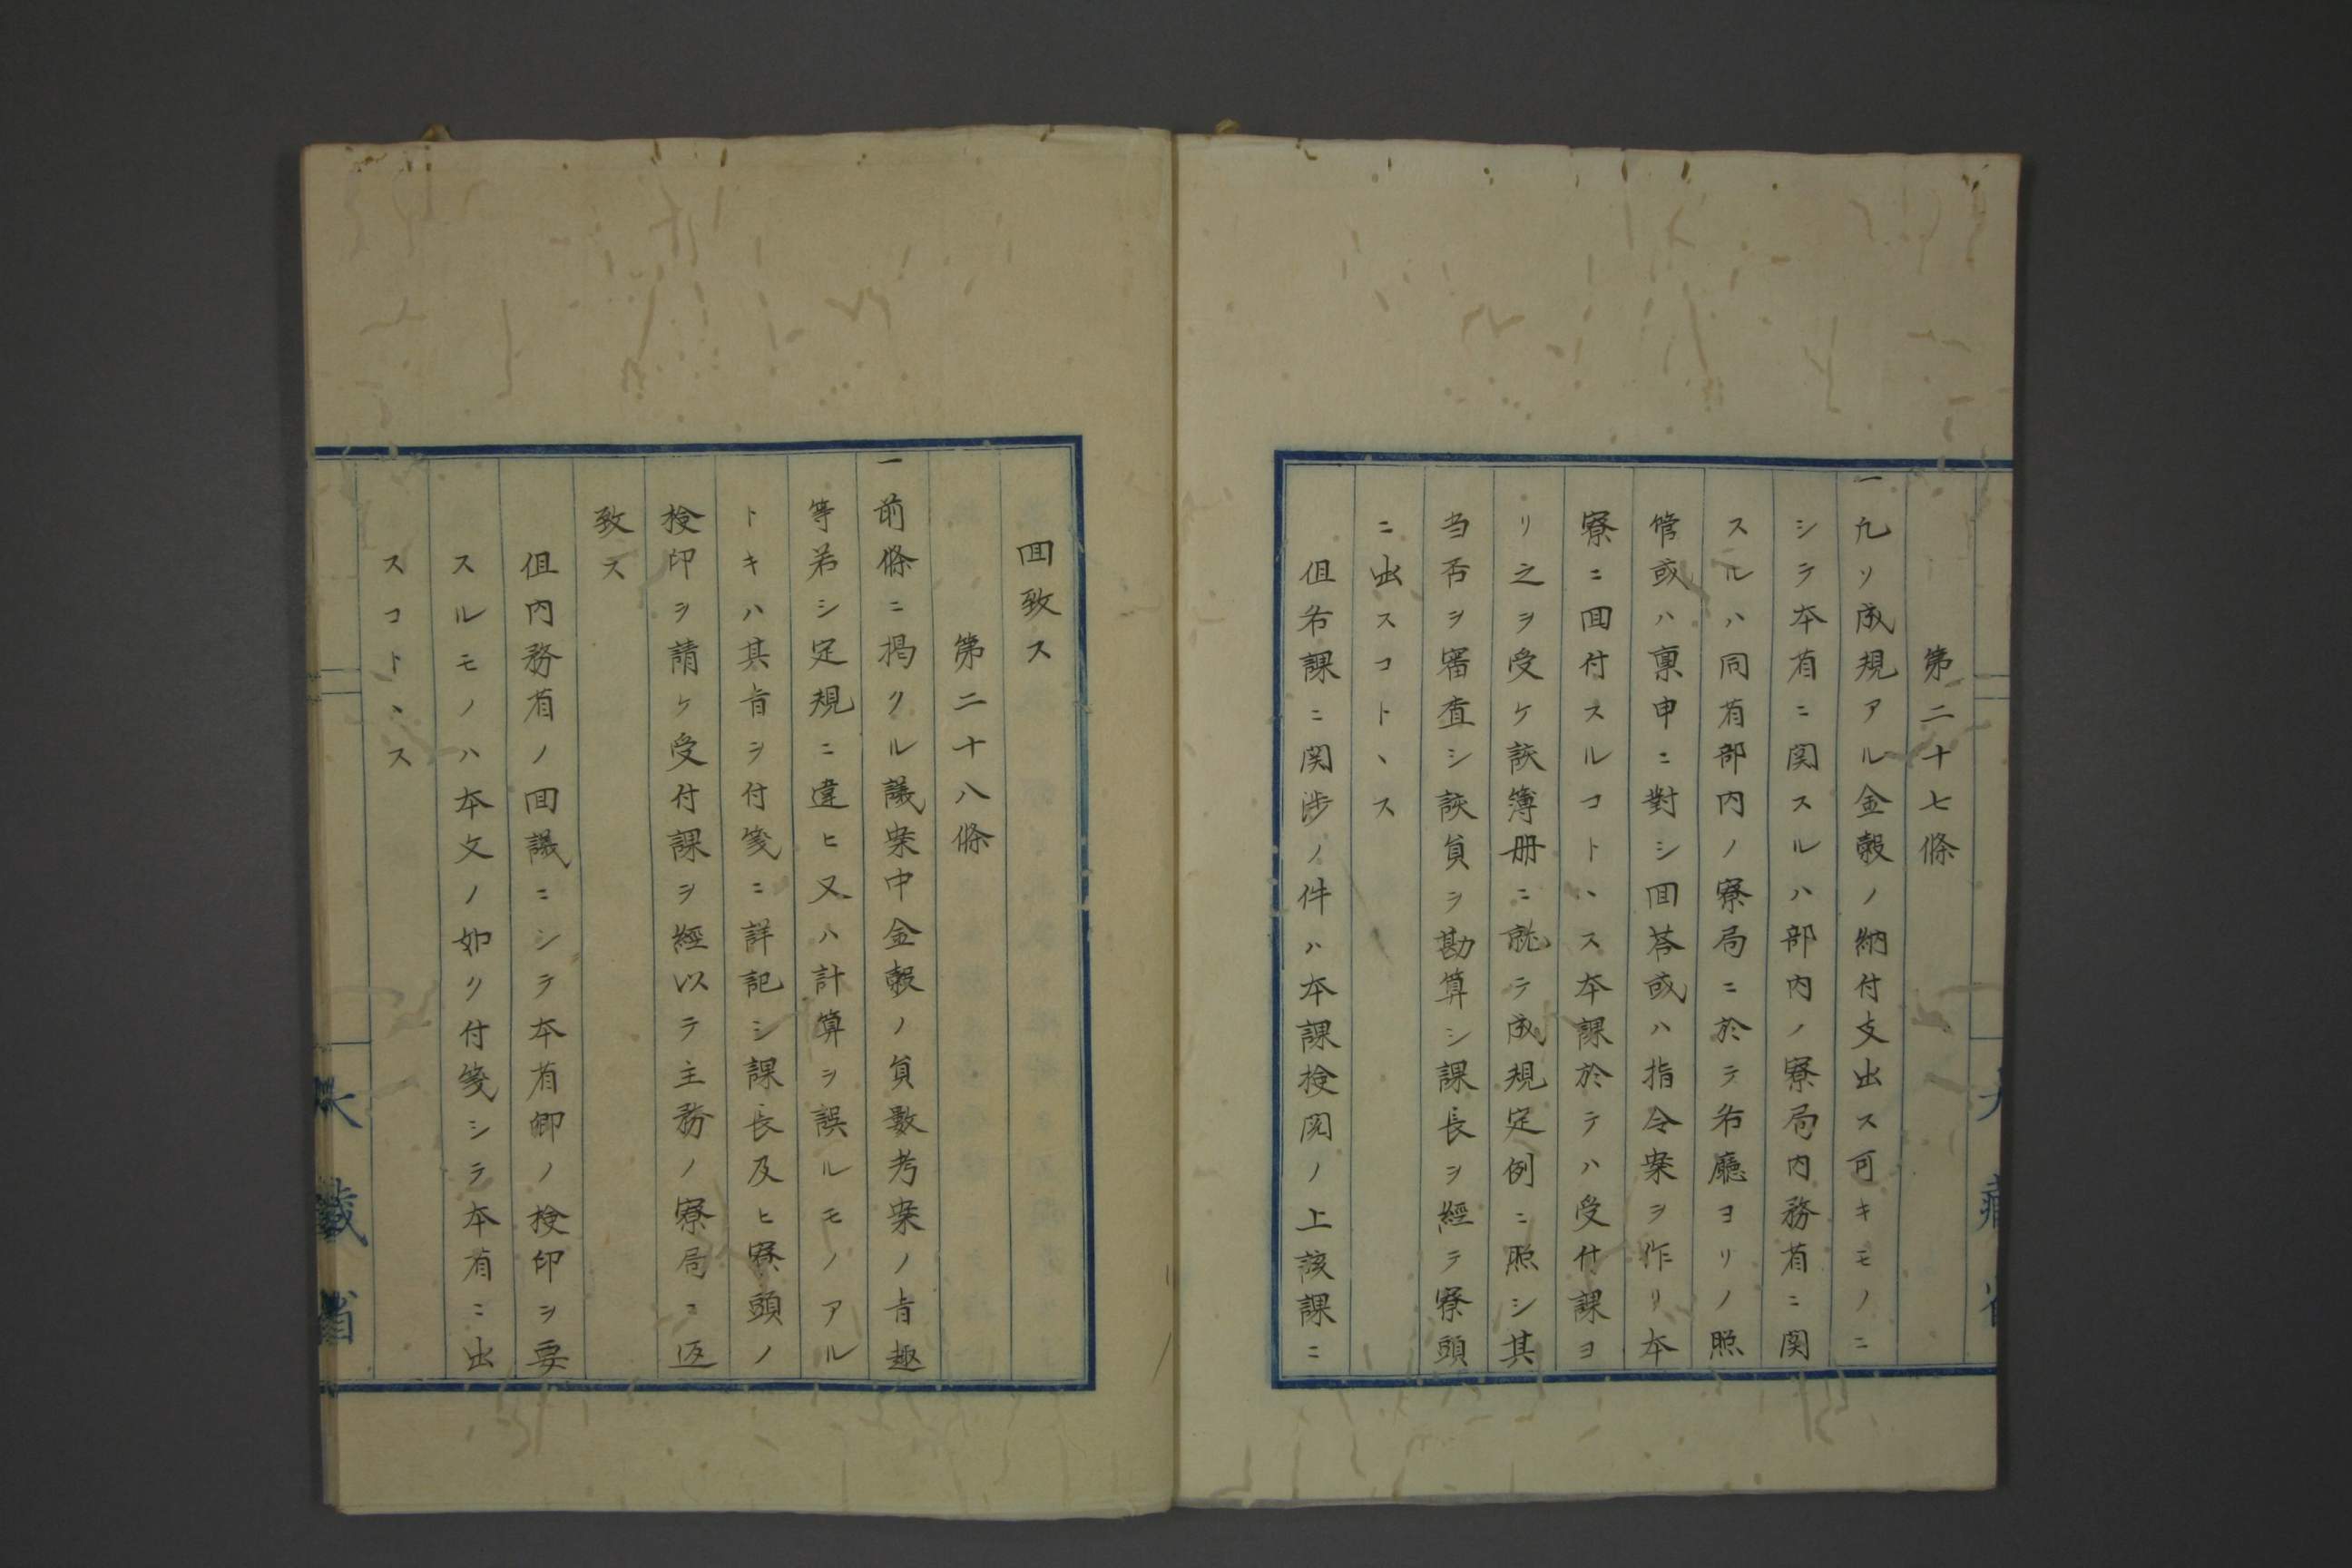 第二十七條
一凡ソ成規アル金穀ノ納付支出ス可キモノニ
シテ本省ニ関スルハ部内ノ寮局内務省ニ関
スルハ同省部内ノ寮局ニ於テ各廳ヨリノ照
會或ハ稟申ニ對シ囬答或ハ指令案ヲ作リ本
寮ニ囬付スルコトヽス本課於テハ受付課ヨ
リ之ヲ受ケ該簿册ニ就テ成規定例ニ照シ其
当否ヲ審査シ該負ヲ勘算シ課長ヲ經テ寮頭
ニ出スコトヽス
但各課ニ関渉ノ件ハ本課検閲ノ上該課ニ
囬致ス
第二十八條
一前條ニ掲クル議案中金穀ノ負數考案ノ旨趣
等若シ定規ニ違ヒ又ハ計算ヲ誤ルモノアル
トキハ其旨ヲ付箋ニ詳記シ課長及ヒ寮頭ノ
検印ヲ請ケ受付課ヲ經以テ主務ノ寮局ニ返
致ス
但内務省ノ囬議ニシテ本省卿ノ検印ヲ要
スルモノハ本文ノ如ク付箋シテ本省ニ出
スコトヽス
大藏省